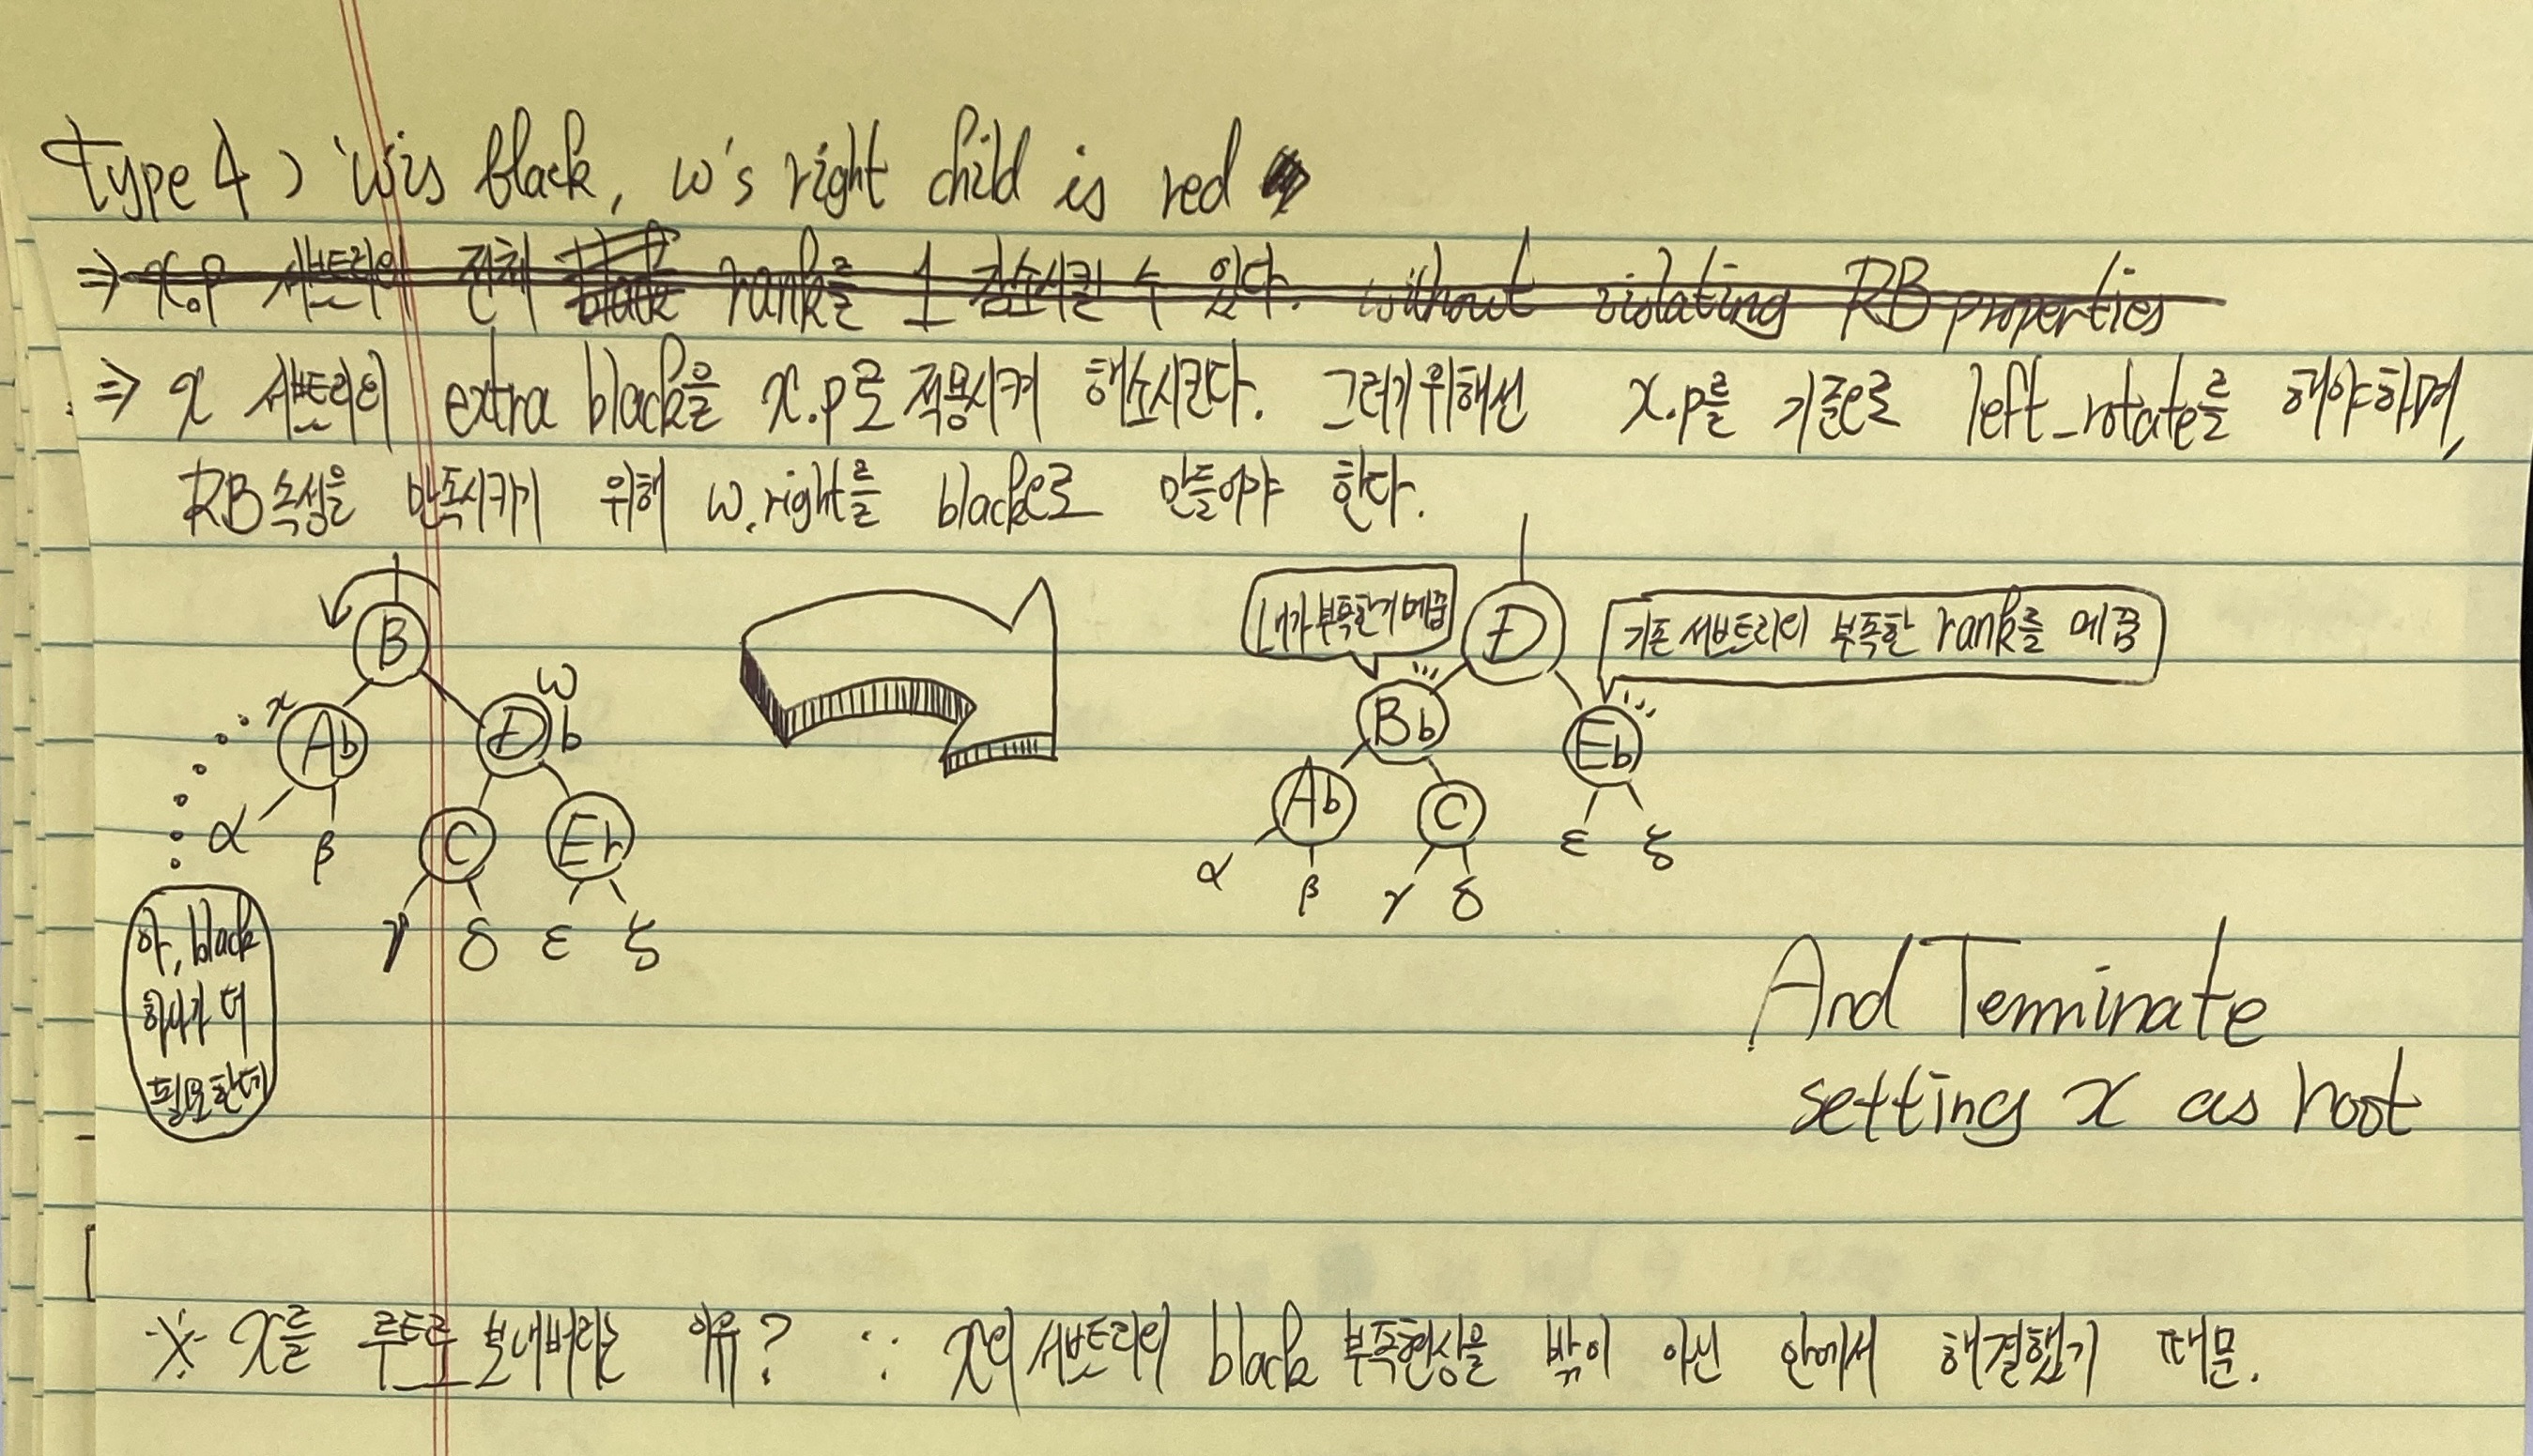 type 4) w is black, w's right child is red
⇒ x.p 서브트리의 전체 black rank를 1 감소시킬 수 있다. without violating RB properties
⇒ x 서브트리의 extra black을 x.p로 적용시켜 해소시킨다. 그러기위해선 x.p를 기준으로 left_rotate를 해야하며,
RB속성을 만족시키기 위해 w.right를 black으로 만들어야 한다.
B
x
Ab
w
D b
α
β
C
Er
γ δ ε ζ
아, black
하나가 더
필요한데
내가 부족한거 메꿈
D
기존 서브트리의 부족한 rank를 메꿈
Bb
Eb
Ab
C
ε ζ
α
β γ δ
And Terminate
setting x as root
※ x를 루트로 보내버리는 이유? ∵ x의 서브트리의 black 부족현상을 밖이 아닌 안에서 해결했기 때문.